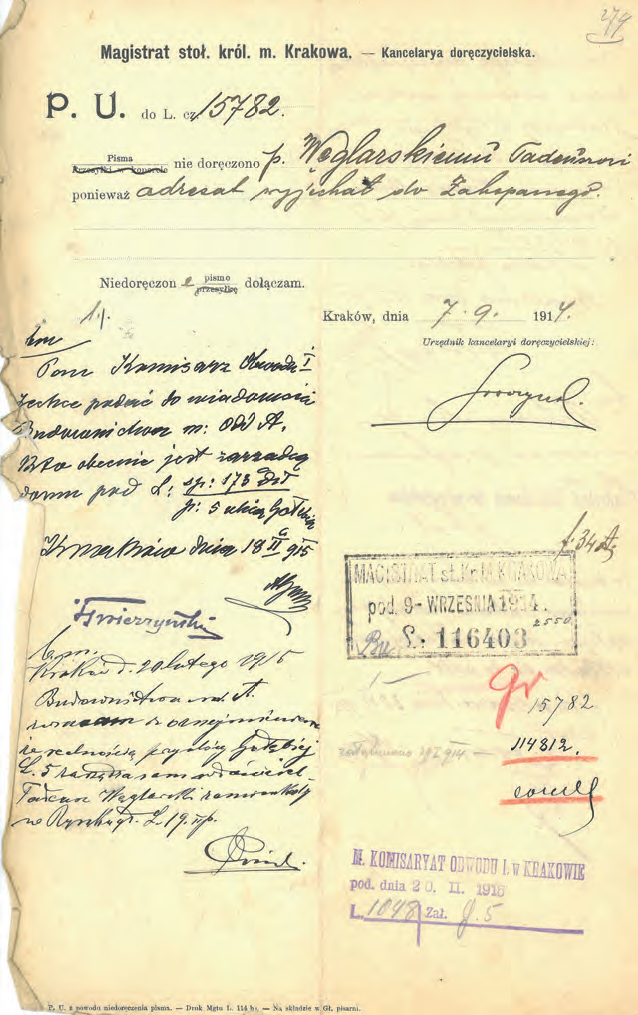 274
Magistrat stoł. król. m. Krakowa. — Kancelarya doręczycielska.
P. U. do L. cz 15782.
Pisma
Przesyłki w kopercie nie doręczono p. Węglarskiemu Tadeuszowi
ponieważ adresat wyjechał do Zakopanego.
Niedoręczone pismo
przesyłkę dołączam.
Kraków, dnia 7. 9. 1914.
Urzędnik kancelaryi doręczycielskiej:
1/.
Pan Komisarz Obwodu I
zechce podać do wiadomości
Budownictwa m: Odd A.
kto obecnie jest zarządcą
domu pod L: sp: 173 dz I
p: 5 ulica Gołębia
Kraków dnia 18 II 915
Kraków d. 20 lutego 1915
Budownictwu m. A.
że realnością przy ulicy Gołębiej
L. 5 zarządza sam właściciel
Tadeusz Węglarski zamieszkały
w Rynku gł. L. 19. IIp.
MAGISTRAT st. Kr. M. KRAKOWA
pod. 9 - WRZEŚNIA 1914.
L: 116403
15782
114812.
M. KOMISARYAT OBWODU I. w KRAKOWIE
pod. dnia 20. II. 1915
L. 1048 Zał. 5
P. U. z powodu niedoręczenia pisma. — Druk Mgtu L. 114 b. — Na składzie w Gł. pisarni.